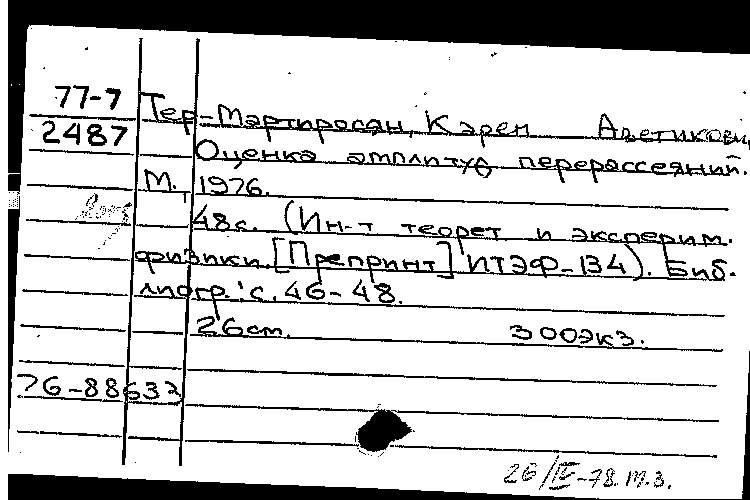 77-7 Тер-Мартиросян, Карен Аветикови
2487 Оценка амплитуд перерассеяний.
М., 1976.
48с. (Ин-т теорет и эксперим.
физики. [Препринт] ИТЭФ-134). Биб-
лиогр.: с. 46-48.
26см. 300экз.
76-88633
26/IV-78. м.з.